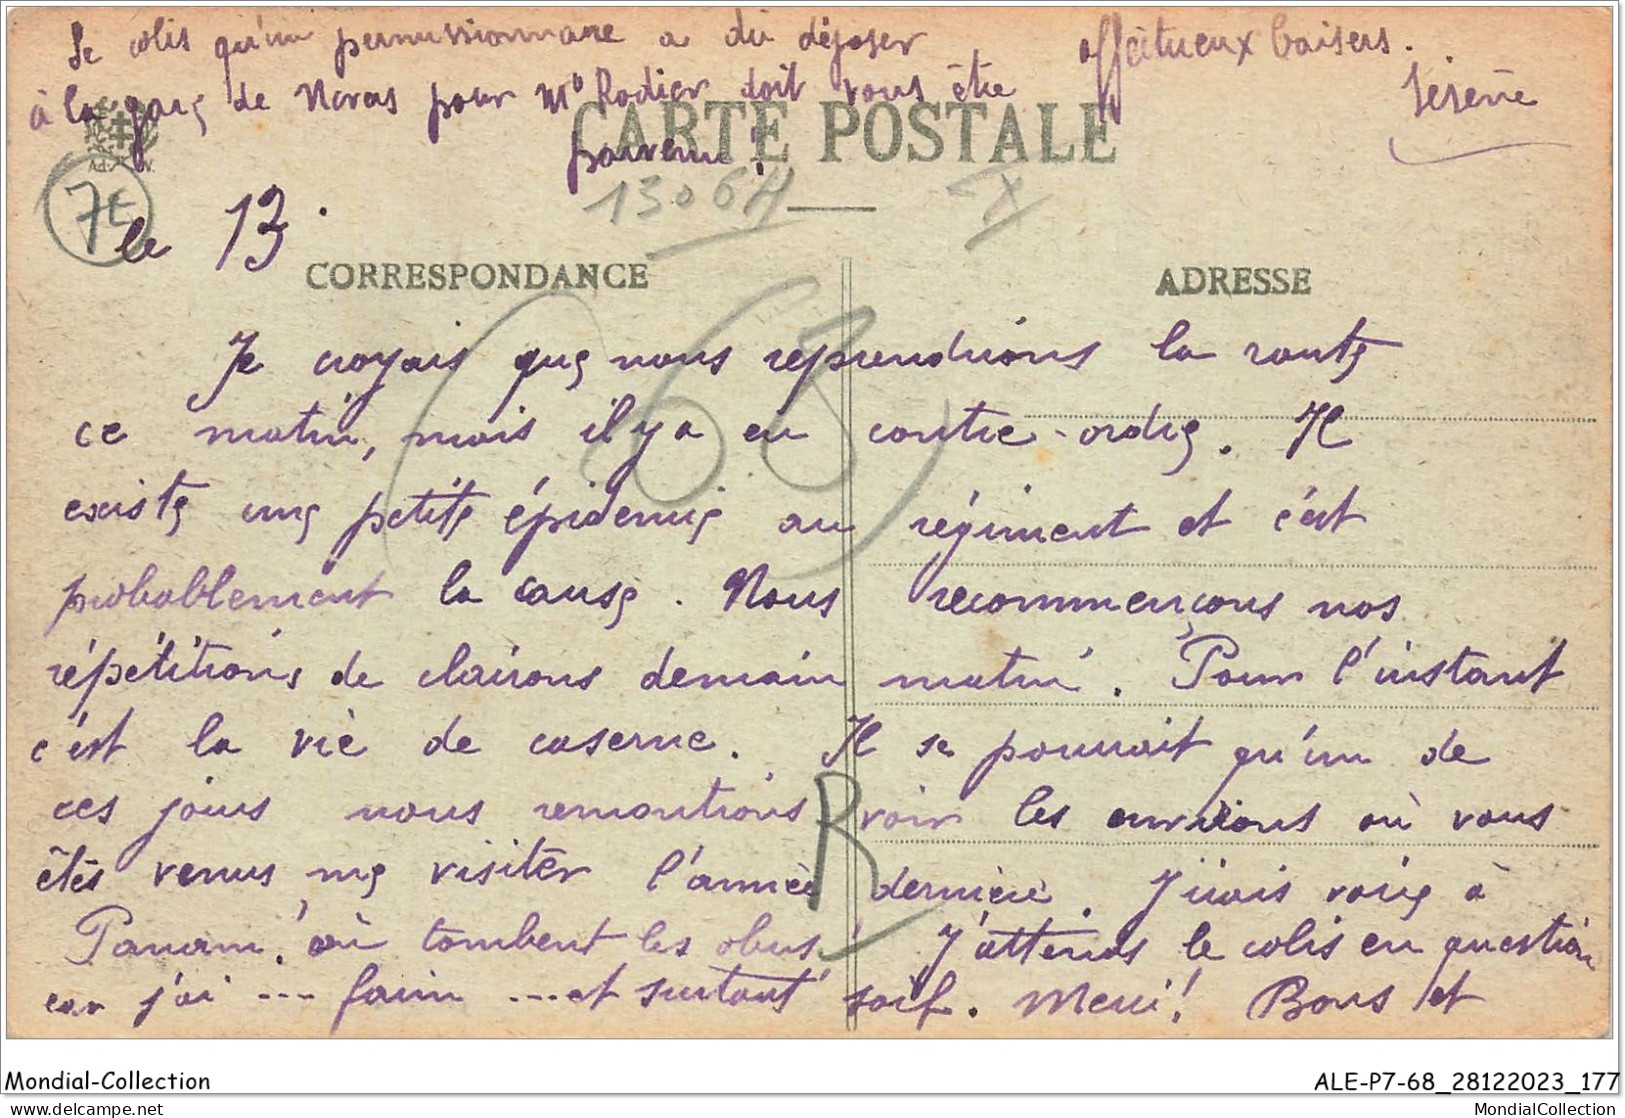 Le colis qu'un permissionnaire a dû déposer
à la gare de Noves pour Mr Rodier doit vous être
parvenu !
affectueux baisers.
CARTE POSTALE
7€
le 13.
1306H
X
CORRESPONDANCE
ADRESSE
(68)
Je croyais que nous reprendrions la route
ce matin, mais il y a eu contre-ordre. Il
existe une petite épidemie au régiment et c'est
probablement la cause. Nous recommençons nos
répétitions de clairons demain matin. Pour l'instant
c'est la vie de caserne. Il se pourrait qu'un de
ces jours nous remontions voir les environs où vous
êtes venus me visiter l'année dernière. J'irais voire à
Panam, où tombent les obus. J'attends le colis en question
car j'ai --- faim ---et surtout soif. Merci! Bons et
R
Mondial-Collection
ALE-P7-68_28122023_177
mondialcollection.com
MondialCollection